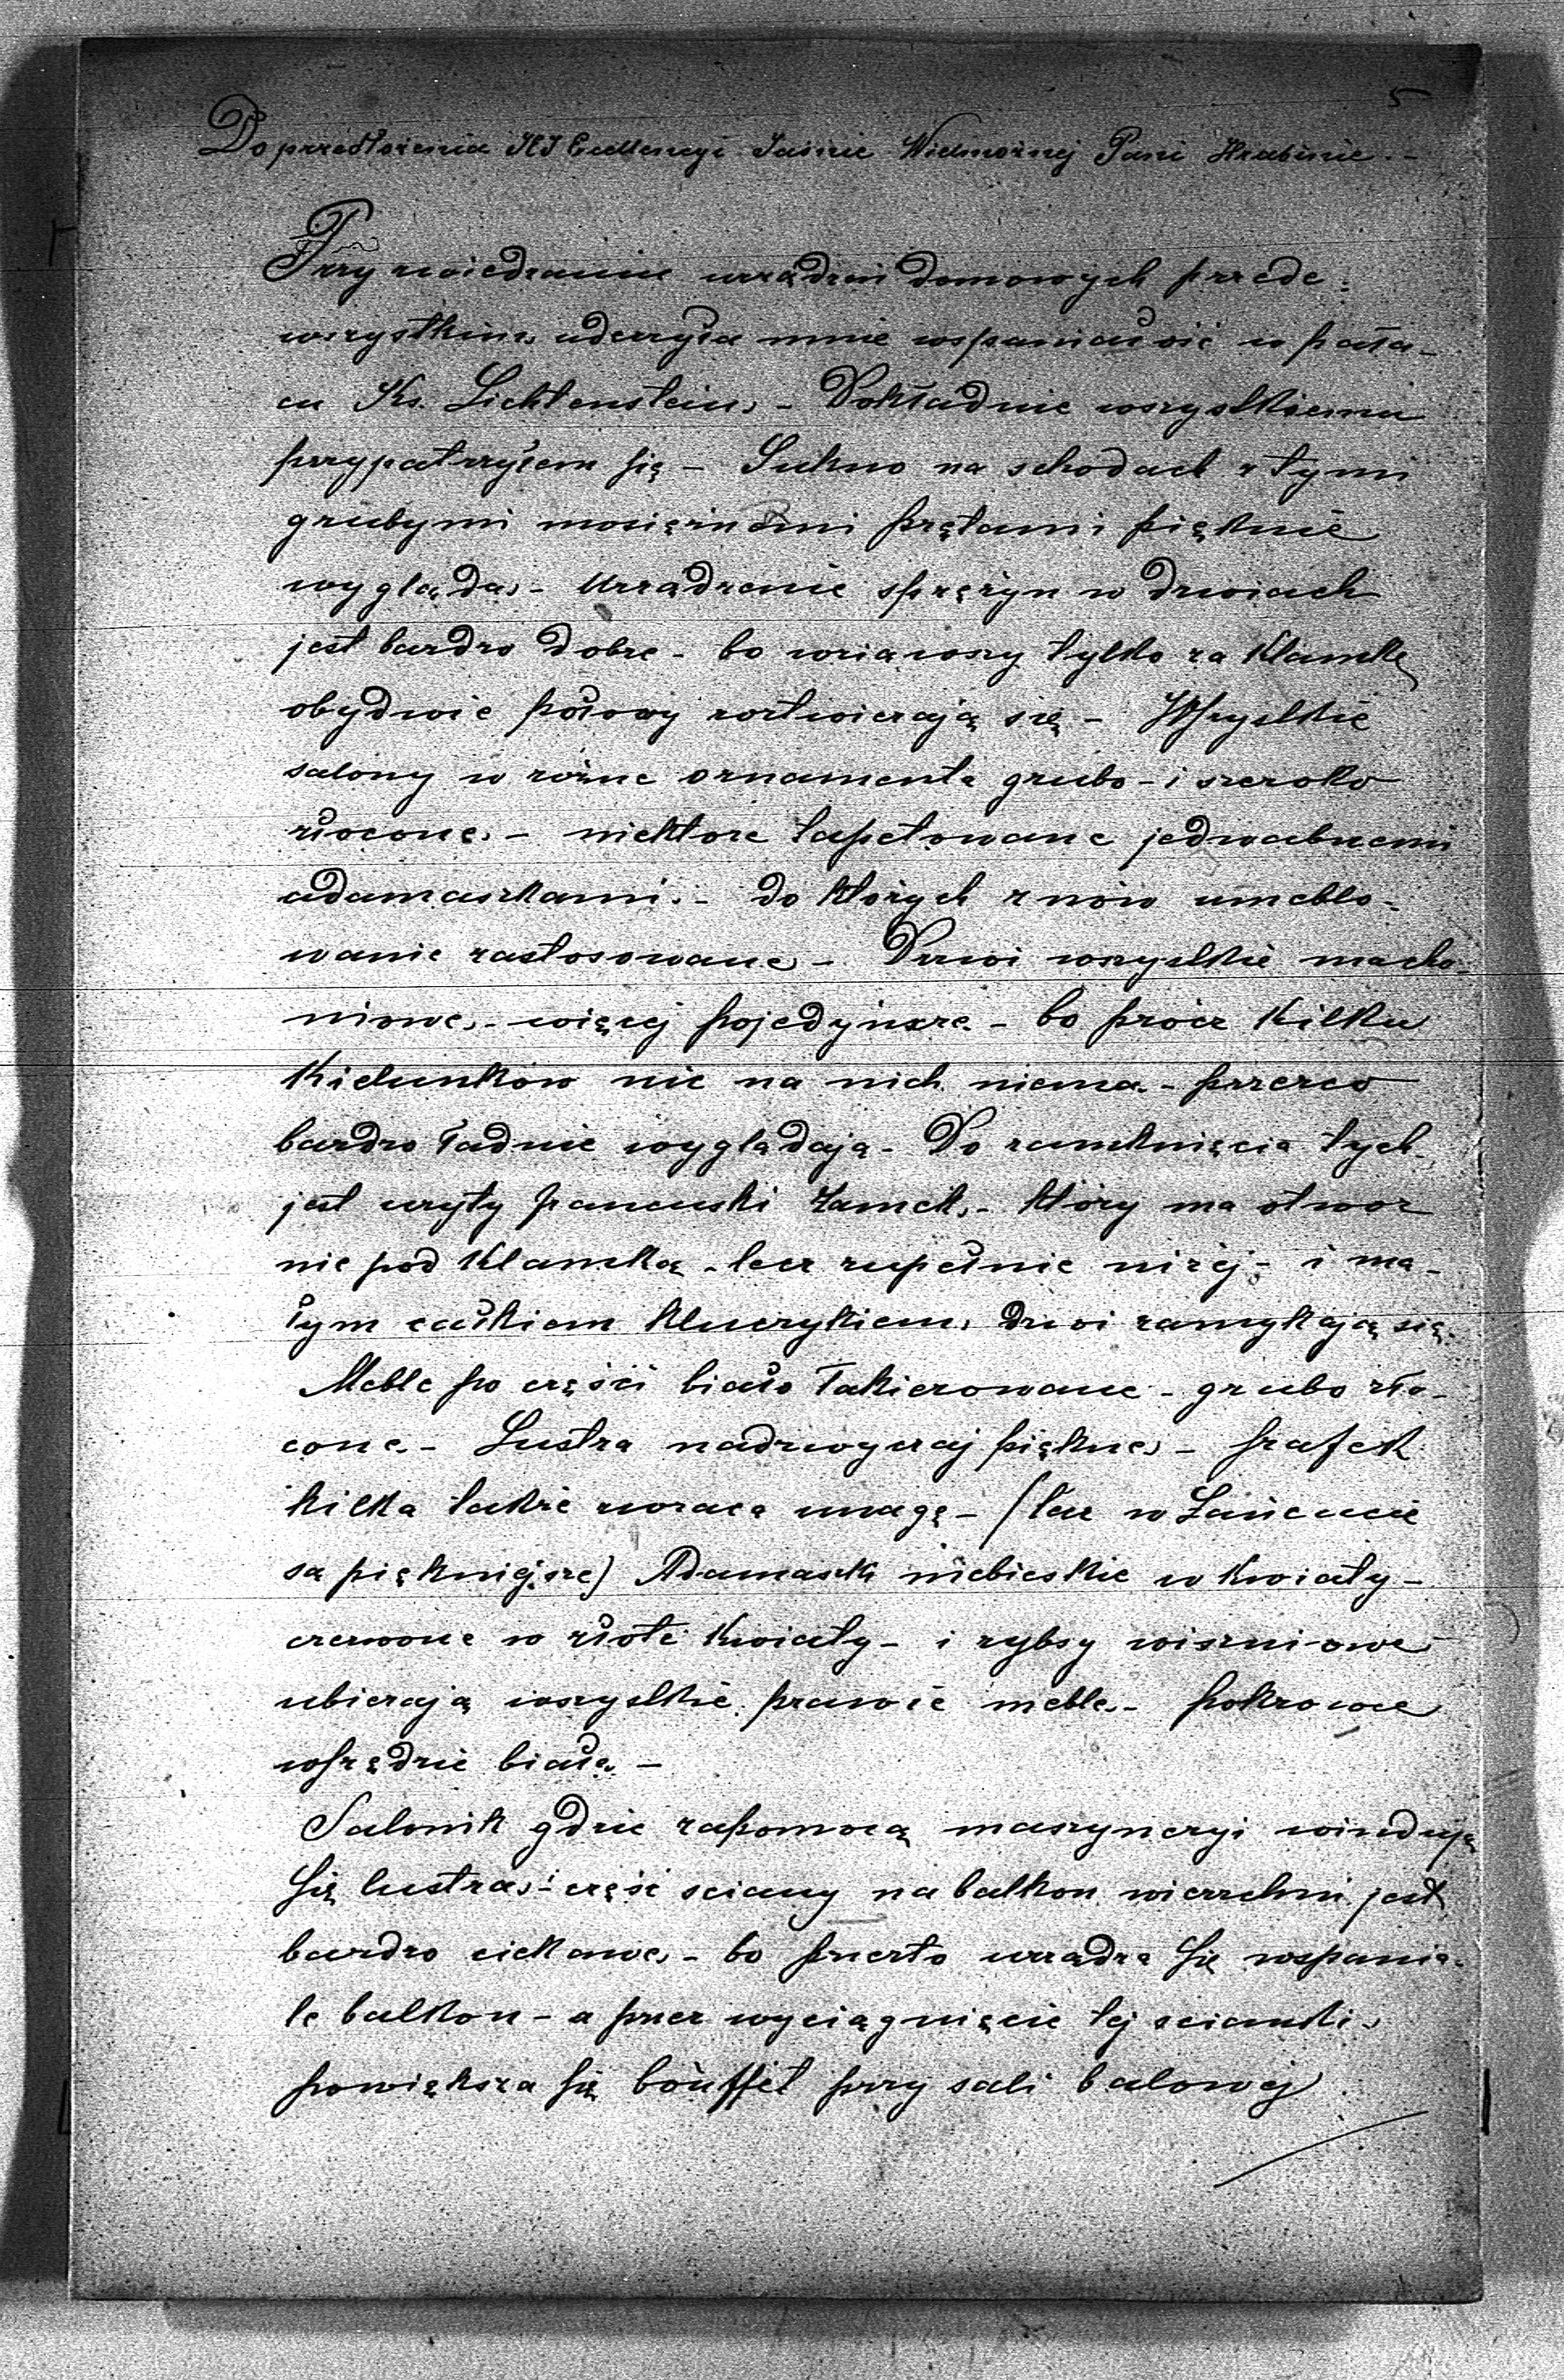 5
Do przedłożenia JEJ Excellencyi Jaśnie Wielmożnej Pani Hrabinie. -
Przy zwiedzaniu urządzeń domowych przede-
wszystkiem uderzyła mnie wspaniałość w pała-
cu Ks. Lichtenstein. - Dokładnie wszystkiemu
przypatrzyłem się - Sukno na schodach z tymi
grubymi mosiężnemi prętami pięknie
wygląda. - Urządzenie sprężyn w drzwiach
jest bardzo dobre - bo wziąwszy tylko za klamkę
obydwie połowy roztwierają się - Wszystkie
salony w różne ornamenta grubo - i szeroko
złocone. - niektore tapetowane jedwabnemi
adamaszkami. - do których znów umeblo-
wanie zastosowane - Drzwi wszystkie macho-
niowe. - więcej pojedyńcze - bo prócz kilku
kielunków nic na nich niema. - przezco
bardzo ładnie wyglądają - Do zamknięcia tych
jest użyty francuski zamek. - który ma otwor
nie pod klamką - lecz zupełnie niżej - i ma-
łym całkiem kluczykiem drzwi zamykają się.
Meble po części biało łakierowane - grubo zło-
cone. - Lustra nadzwyczaj piękne - szafek
kilka także zwraca uwagę - (lecz w Łańcucie
są piękniejsze) Adamaszki niebieskie w kwiaty -
czerwone w złote kwiaty - i rybsy wiszniowe
ubierają wszystkie prawie meble. - pokrowce
wszędzie białe. -
Salonik gdzie zapomocą maszyneryi windują
się lustra, i część sciany na balkon wierzchni jest
bardzo ciekawe. - bo przezto urządza się wspania-
le balkon - a przez wyciągnięcie tej scianki
powiększa się bouffet przy sali balowej